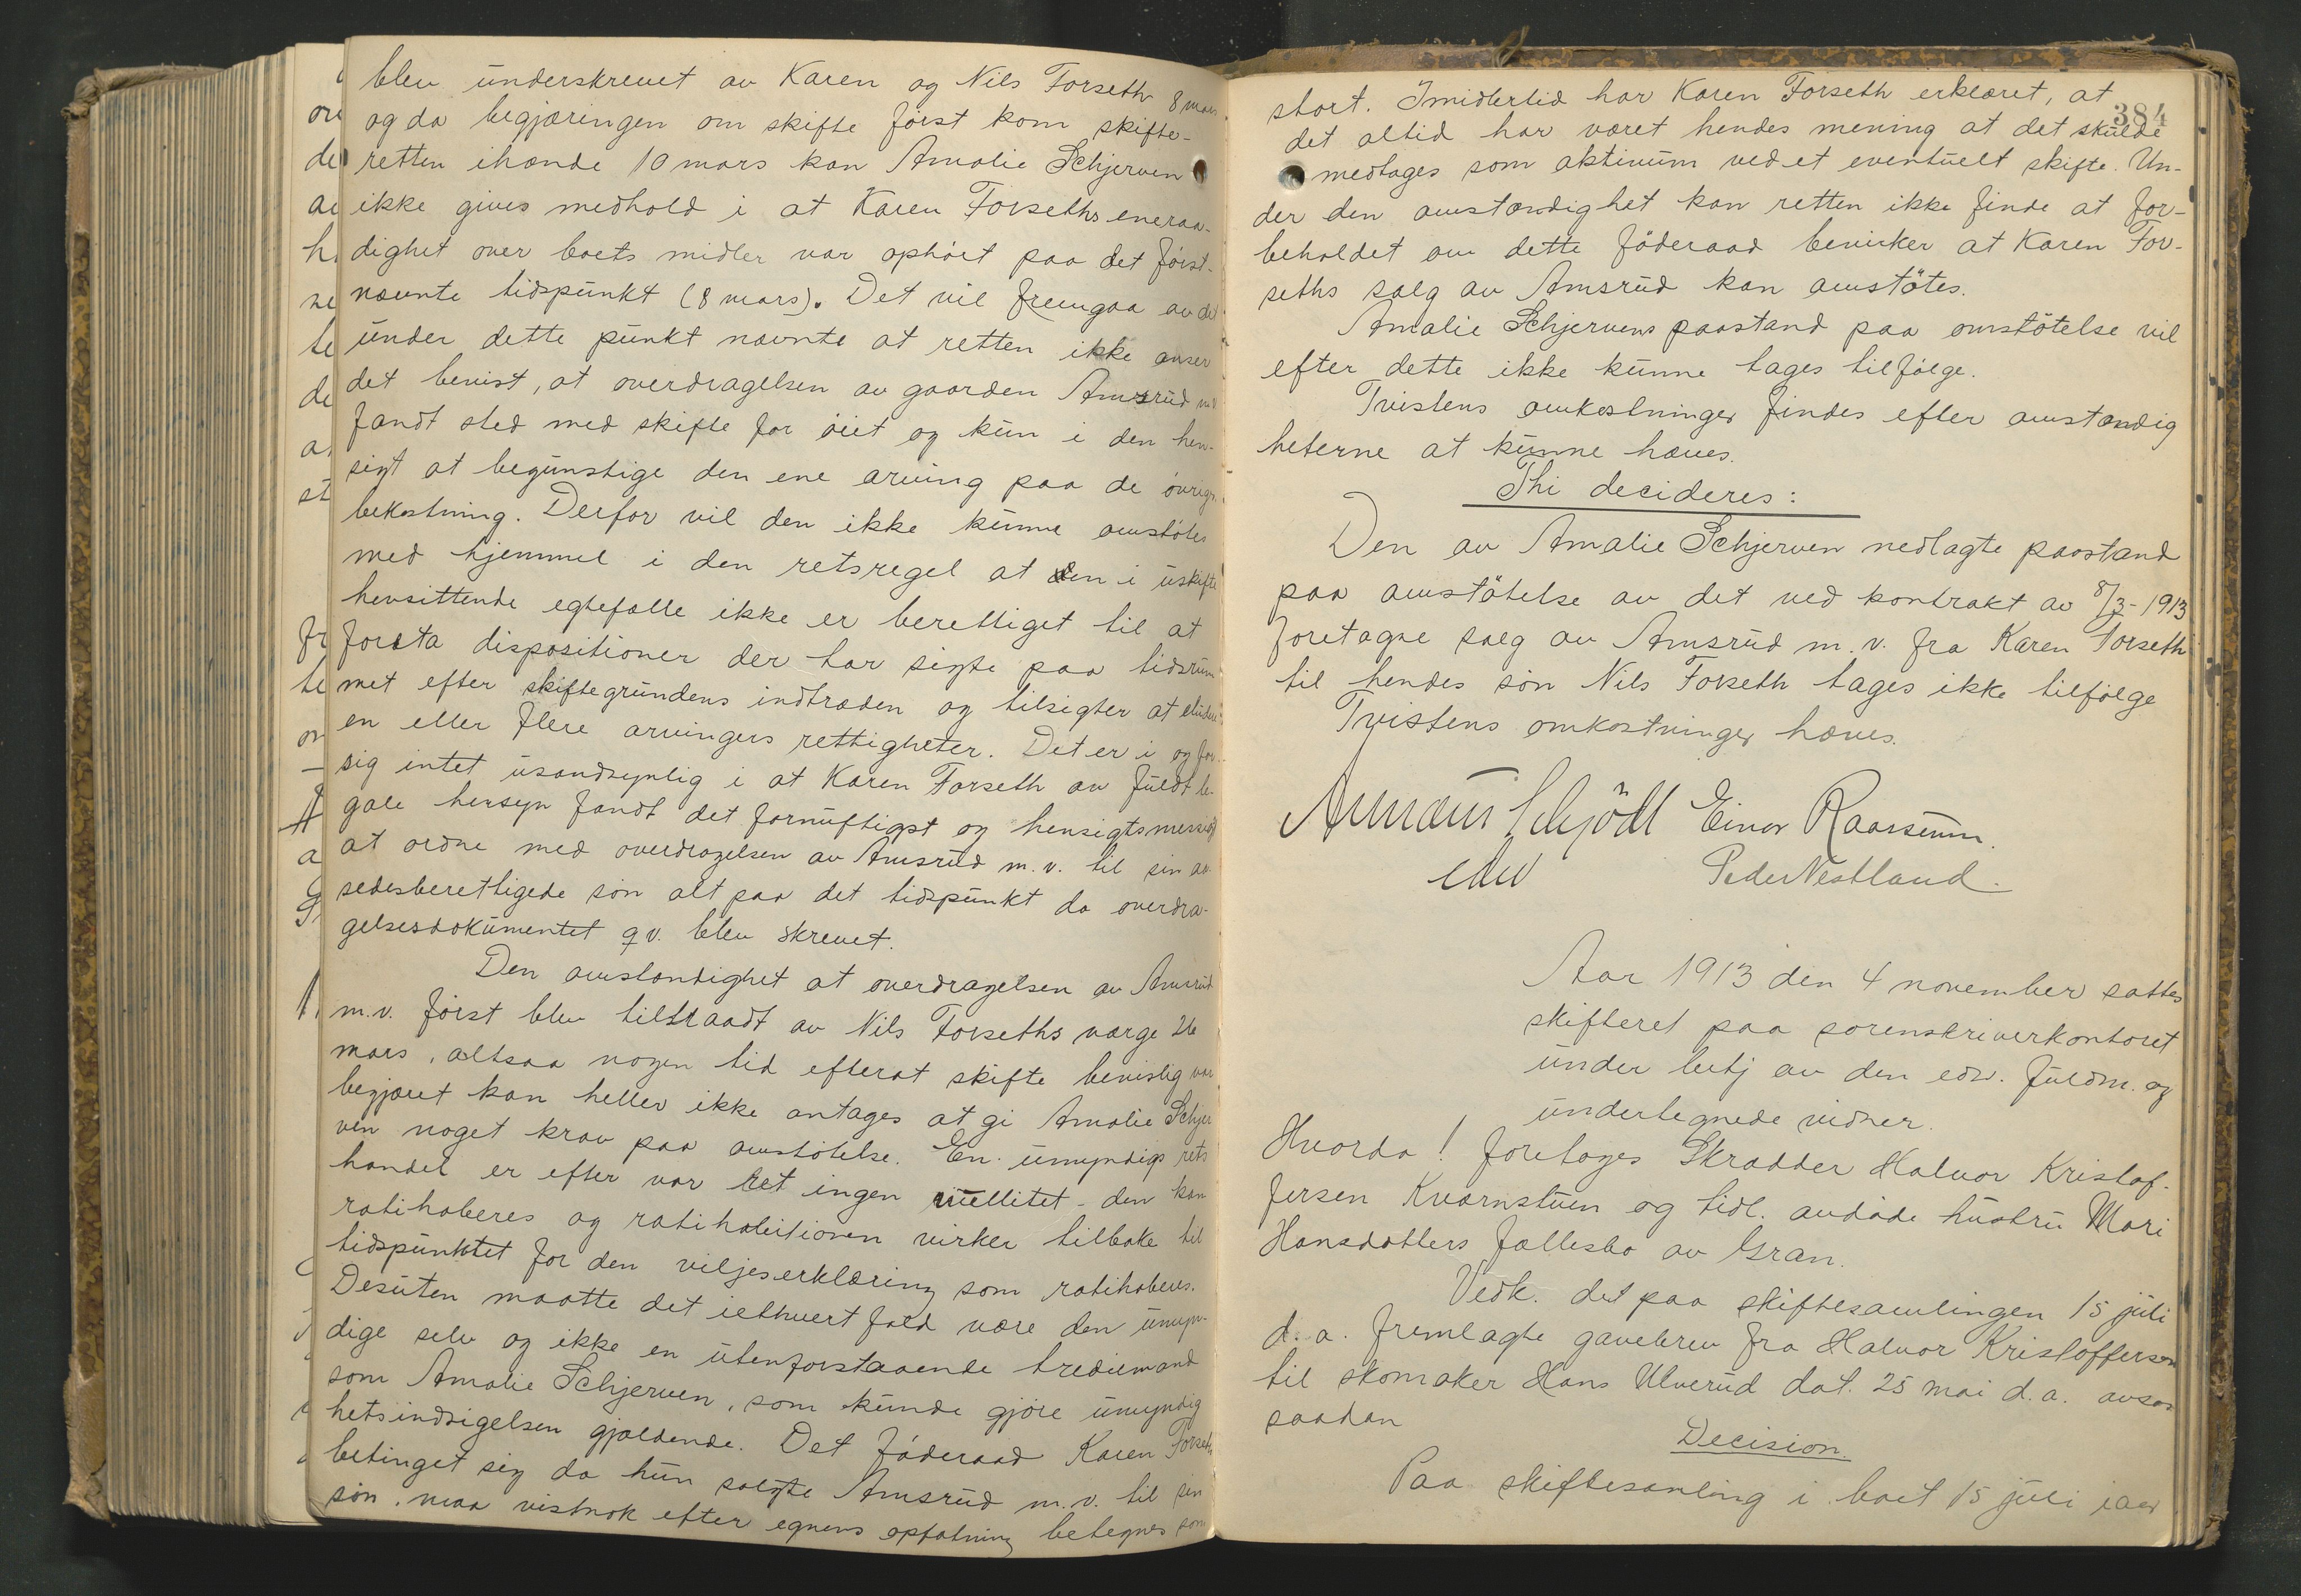 blev underskrevet av Karen og Nils Forseth 8 mars
og da begjæringen om skifte først kom skifte-
retten ihænde 10 mars kan Amalie Schjerven
ikke gives medhold i at Karen Forseths eneraa-
dighet over boets midler var ophørt paa det først-
nævnte tidspunkt (8 mars). Det vil fremgaa av det
under dette punkt nævnte at retten ikke anser
det bevist, at overdragelsen av gaarden Amsrud m.v.
fandt sted med skifte for øiet og kun i den hen-
sigt at begunstige den ene arving paa de øvriges
bekostning. Derfor vil den ikke kunne omstøtes
med hjemmel i den retsregel at den i uskifte
hensittende egtefælle ikke er berettiget til at
foreta dispositioner der tar sigte paa tidsrum-
met efter skiftegrundens indtræden og tilsigter at eludere
en eller flere arvingers rettigheter. Det er i og for
sig intet usandsynlig i at Karen Forseth av fuldt le-
gale hensyn fandt det fornuftigst og hensigtsmessigst
at ordne med overdragelsen av Amsrud m.v. til sin aa-
sædesberettigede søn alt paa det tidspunkt da overdra-
gelsesdokumentet qv. blev skrevet.
Den omstændighet at overdragelsen av Amsrud
m.v. først blev tiltraadt av Nils Forseths værge 26
mars, altsaa nogen tid efterat skifte bevislig var
begjæret kan heller ikke antages at gi Amalie Schjer
ven noget krav paa omstøtelse. En umyndigs rets
handel er efter vor ret ingen nullitet - den kan
ratihaberes og ratihabitionen virker tilbake til
tidspunktet for den viljeserklæring som ratihaberes.
Desuten maatte det iethvert fald være den umyn-
dige selv og ikke en utenforstaaende trediemand
som Amalie Schjerven, som kunde gjøre umyndig
hetsindsigelsen gjældende. Det føderaad Karen Forseth
betinget sig da hun solgte Amsrud m.v. til sin
søn, maa vistnok efter egnens opfatning betegnes som
384
stort. Imidlertid har Karen Forseth erklæret, at
det altid har været hendes mening at det skulde
medtages som aktivum ved et eventuelt skifte. Un-
der den omstændighet kan retten ikke finde at for-
beholdet om dette föderaad bevirker at Karen For-
seths salg av Amsrud kan omstötes.
Amalie Schjervens paastand paa omstötelse vil
efter dette ikke kunne tages tilfølge.
Tvistens omkostninger findes efter omstændig
heterne at kunne hæves.
Thi decideres:
Den av Amalie Schjerven nedlagte paastand
paa omstötelse av det ved kontrakt av 8/3-1913
foretagne salg av Amsrud m.v. fra Karen Forseth
til hendes søn Nils Forseth tages ikke tilfølge
Tvistens omkostninger hæves.
Schjödt Einar Raassum.
edw Peder Nestland.
Aar 1913 den 4 november sattes
skifteret paa sorenskriverkontoret
under betj av den edsv. fuldm. og
undertegnede vidner.
Hvorda! foretages Skrædder Halvor Kristof-
fersen Kværnstuen og tidl. avdøde hustru Mari
Hansdatters fællesbo av Gran.
Vedk. det paa skiftesamlingen 15 juli
d.a. fremlagte gavebrev fra Halvor Kristoffersen
til skomaker Hans Ulverud dat. 25 mai d.a. avsas
saadan
Decision.
Paa skiftesamling i boet 15 juli iaar